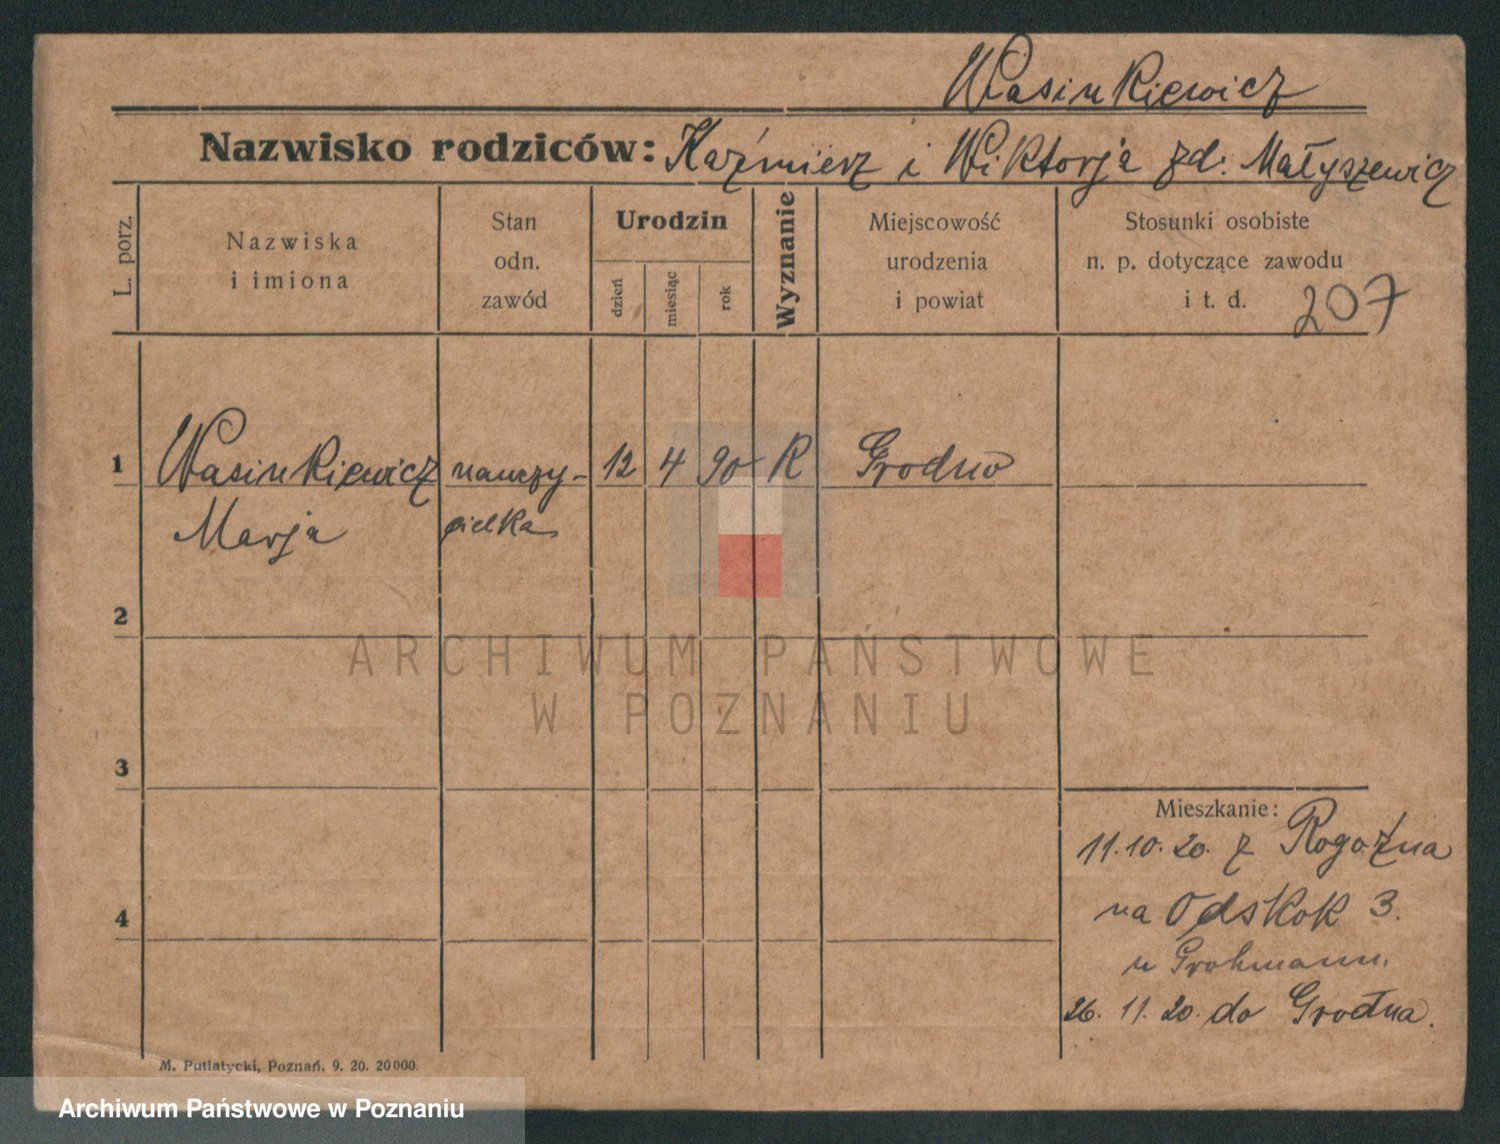 Wasinkiewicz
Nazwisko rodziców: Kaźmierz i Wiktorja zd. Małyszewicz
L. porz.
Nazwiska
i imiona
Stan
odn.
zawód
Urodzin
dzień
miesiąc
rok
Wyznanie
Miejscowość
urodzenia
i powiat
Stosunki osobiste
n. p. dotyczące zawodu
i t. d.
207
1 Wasinkiewicz nauczy- 12 4 90 R Grodno
Marja cielka
2
3
4
Mieszkanie:
11.10.20. z Rogoźna
na Odskok 3.
u Grohmann.
26. 11. 20. do Grodna.
M. Putiatycki, Poznań. 9. 20. 20000.
ARCHIWUM PAŃSTWOWE
W POZNANIU
Archiwum Państwowe w Poznaniu